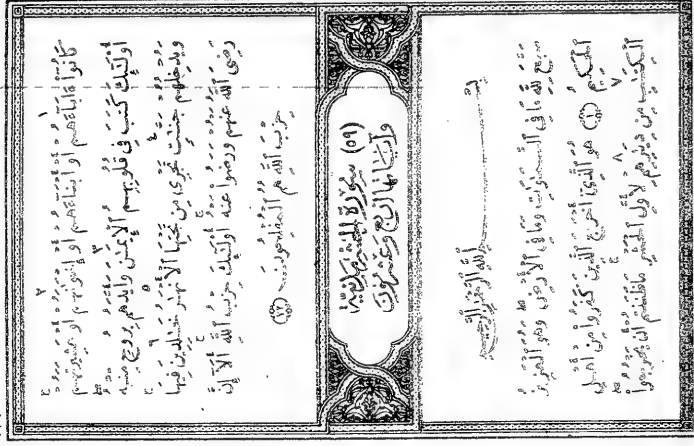 كَانُوٓا۟ ءَابَآءَهُمْ أَوْ أَبْنَآءَهُمْ أَوْ إِخْوَٰنَهُمْ أَوْ عَشِيرَتَهُمْ
أُو۟لَٰٓئِكَ كَتَبَ فِى قُلُوبِهِمُ ٱلْإِيمَٰنَ وَأَيَّدَهُم بِرُوحٍ مِّنْهُ
وَيُدْخِلُهُمْ جَنَّٰتٍ تَجْرِى مِن تَحْتِهَا ٱلْأَنْهَٰرُ خَٰلِدِينَ فِيهَا
رَضِىَ ٱللَّهُ عَنْهُمْ وَرَضُوا۟ عَنْهُ أُو۟لَٰٓئِكَ حِزْبُ ٱللَّهِ أَلَآ إِنَّ
حِزْبَ ٱللَّهِ هُمُ ٱلْمُفْلِحُونَ ﴿٢٢﴾
(٥٩) سُورَةُ الْحَشْرِ مَدَنِيَّة
وَآيَاتُهَا أَرْبَعٌ وَعِشْرُونَ
بِسْمِ ٱللَّهِ ٱلرَّحْمَٰنِ ٱلرَّحِيمِ
سَبَّحَ لِلَّهِ مَا فِى ٱلسَّمَٰوَٰتِ وَمَا فِى ٱلْأَرْضِ وَهُوَ ٱلْعَزِيزُ
ٱلْحَكِيمُ ﴿١﴾ هُوَ ٱلَّذِىٓ أَخْرَجَ ٱلَّذِينَ كَفَرُوا۟ مِنْ أَهْلِ
ٱلْكِتَٰبِ مِن دِيَٰرِهِمْ لِأَوَّلِ ٱلْحَشْرِ مَا ظَنَنتُمْ أَن يَخْرُجُوا۟